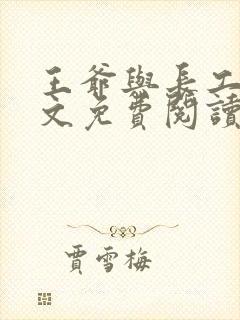 王爺與長工
文免費閱讀
賈雪梅